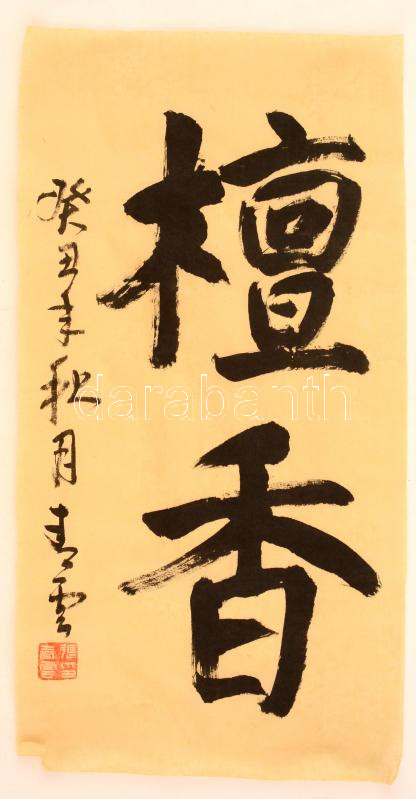 檀香
癸丑年秋月青雲
darabanth